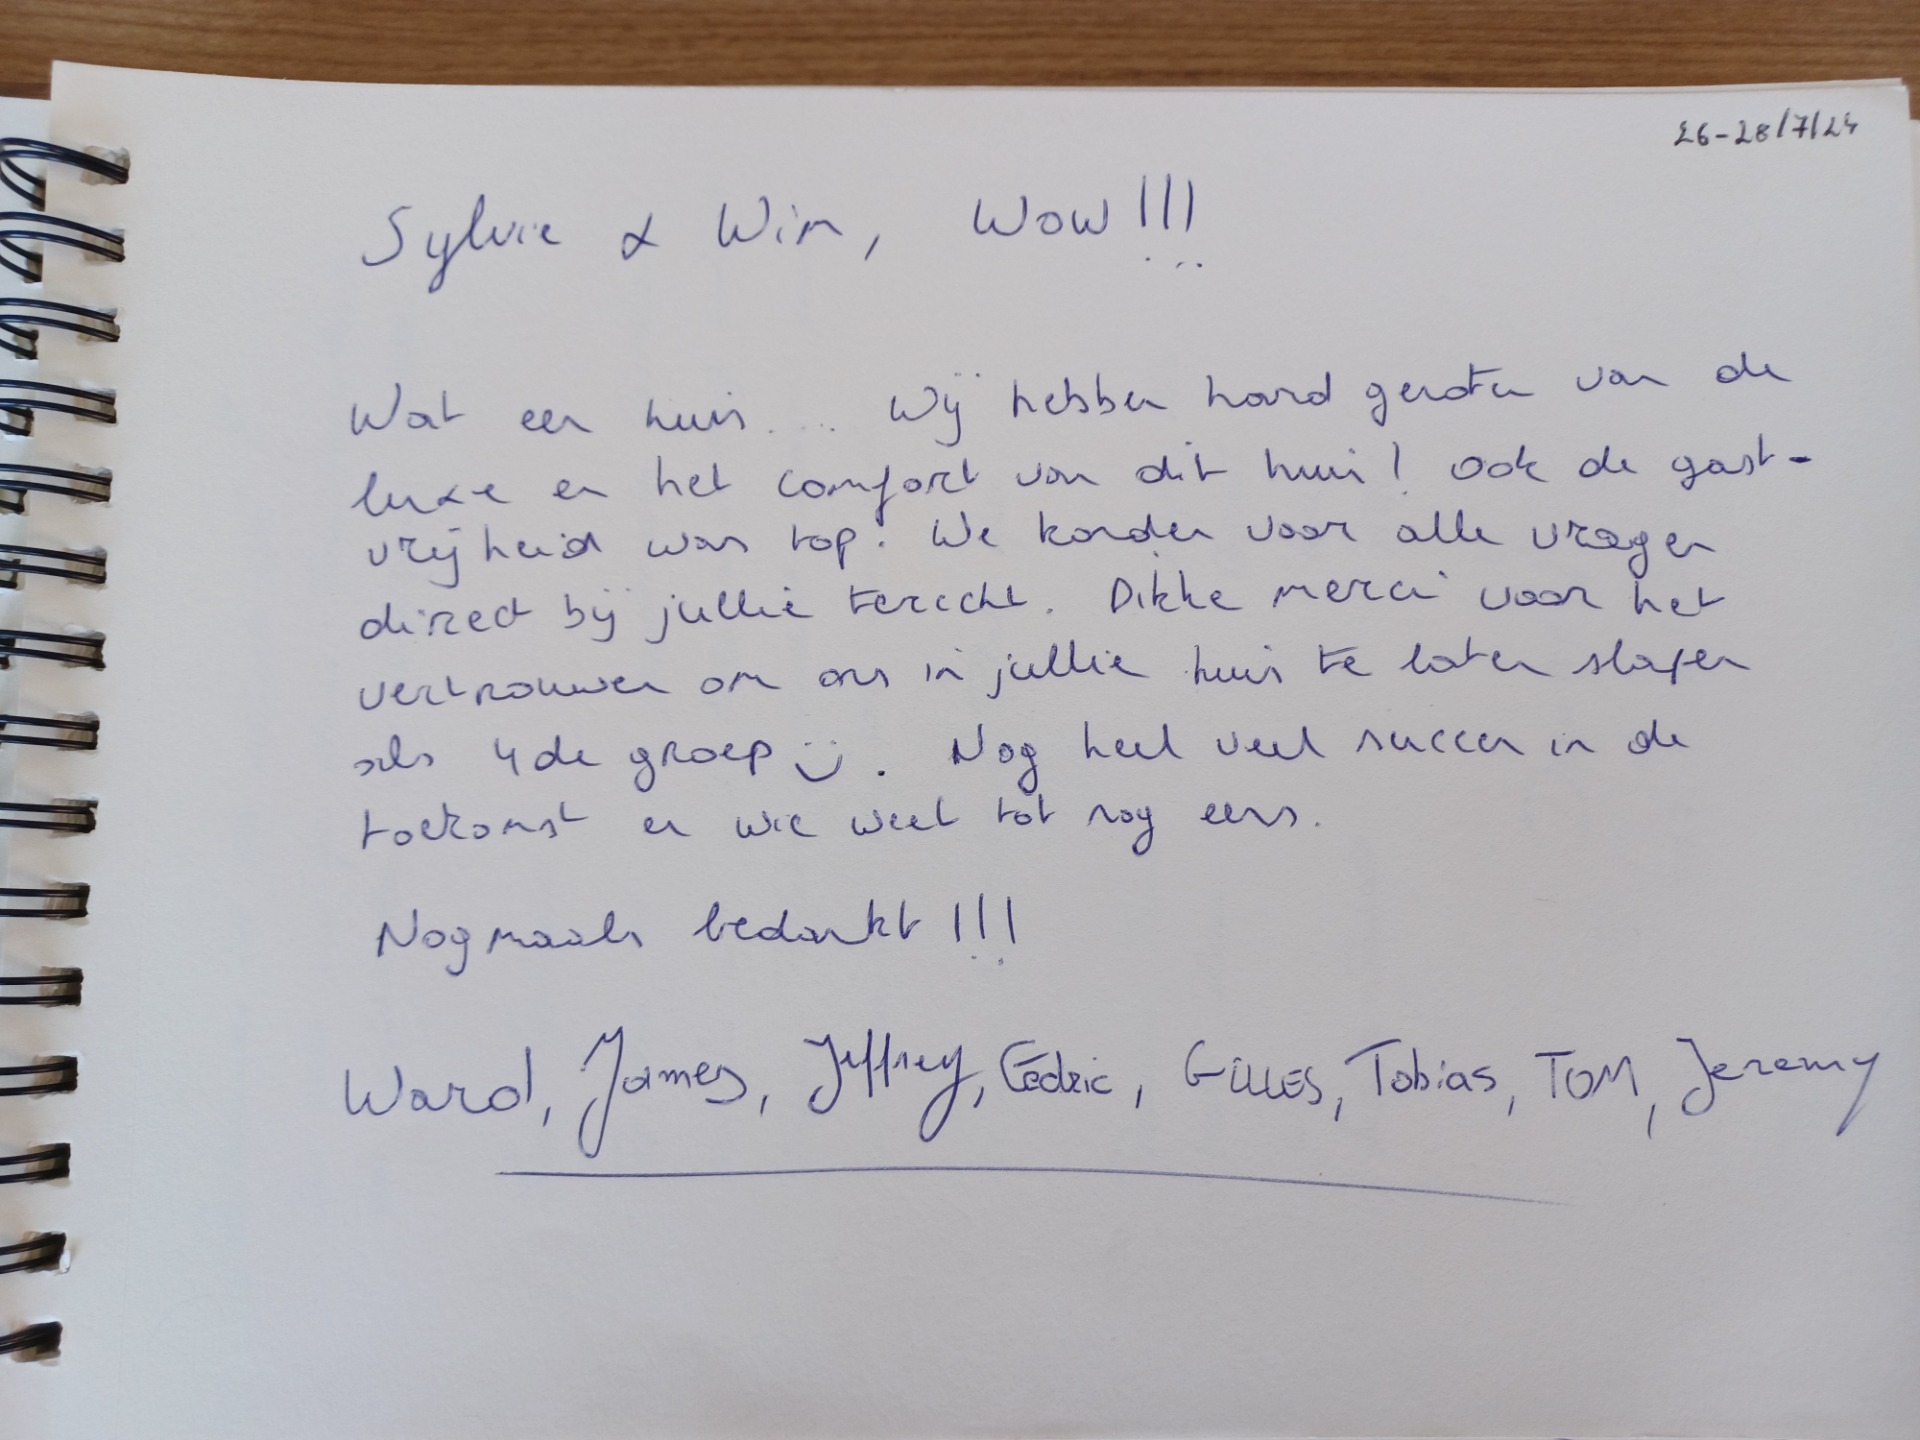 26-28/7/24
Sylvie & Wim, Wow!!!
Wat een huis.... Wij hebben hard genoten van de
luxe en het comfort van dit huis! Ook de gast-
vrijheid was top. We konden voor alle vragen
direct bij jullie terecht. Dikke merci voor het
vertrouwen om ons in jullie huis te laten slapen
als 4de groep :). Nog heel veel succes in de
toekomst en wie weet tot nog eens.
Nogmaals bedankt!!!
Ward, James, Jeffrey, Cédric, GILLES, Tobias, TOM, Jeremy